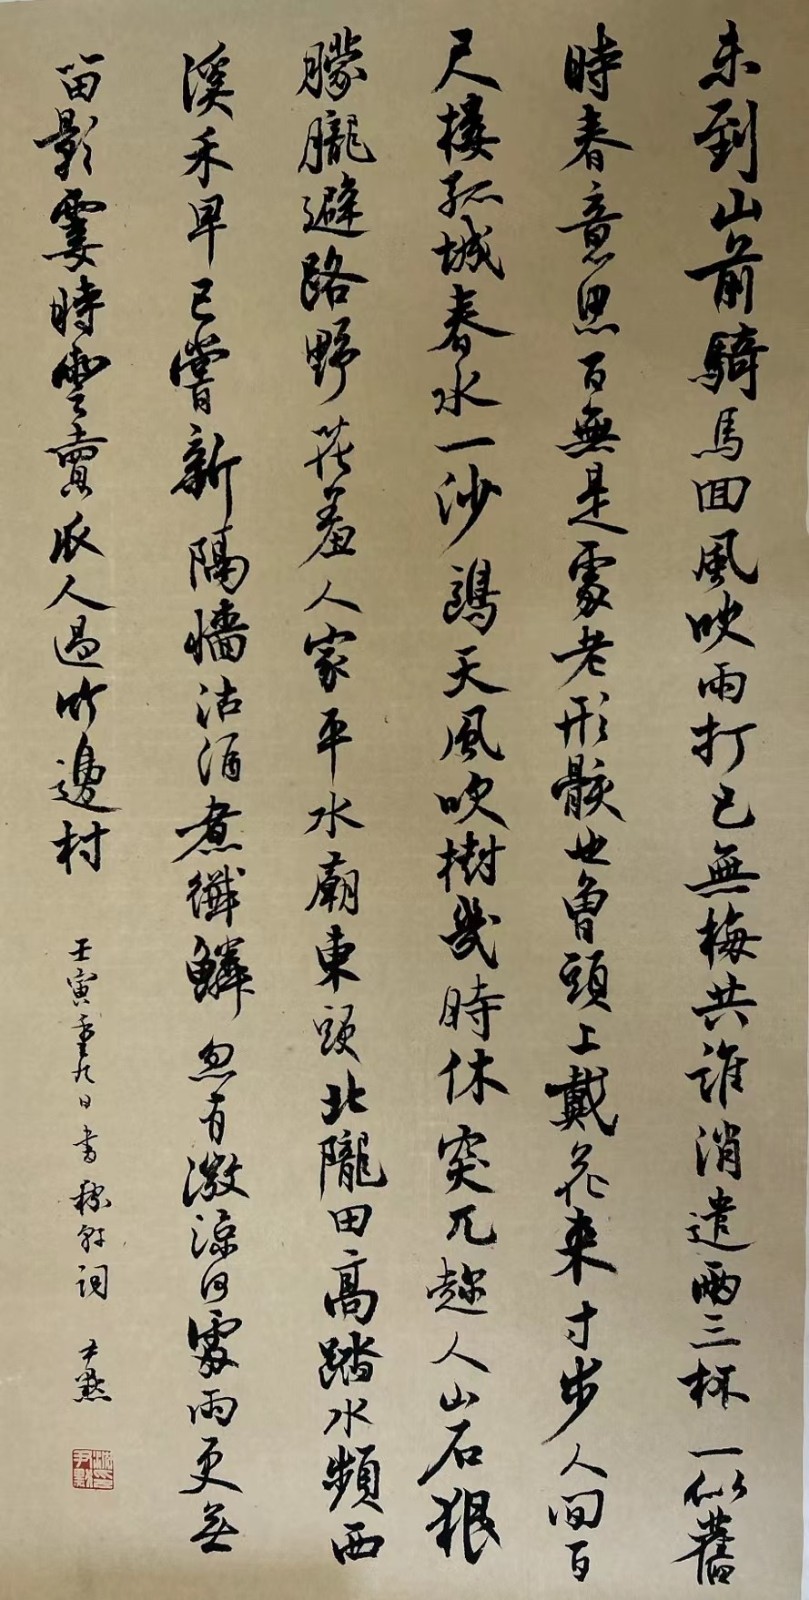 未到山前騎馬回風吹雨打已無梅共誰消遣兩三杯一似舊
時春意思百無是處老形骸也曾頭上戴花來寸步人間百
尺樓孤城春水一沙鷗天風吹樹幾時休突兀趁人山石狠
朦朧避路野花羞人家平水廟東頭北隴田高踏水頻西
溪禾早已嘗新隔牆沽酒煮纖鱗忽有微涼何處雨更無
留影霎時雲賣瓜人過竹邊村
壬寅重九日書稼軒詞 尹默